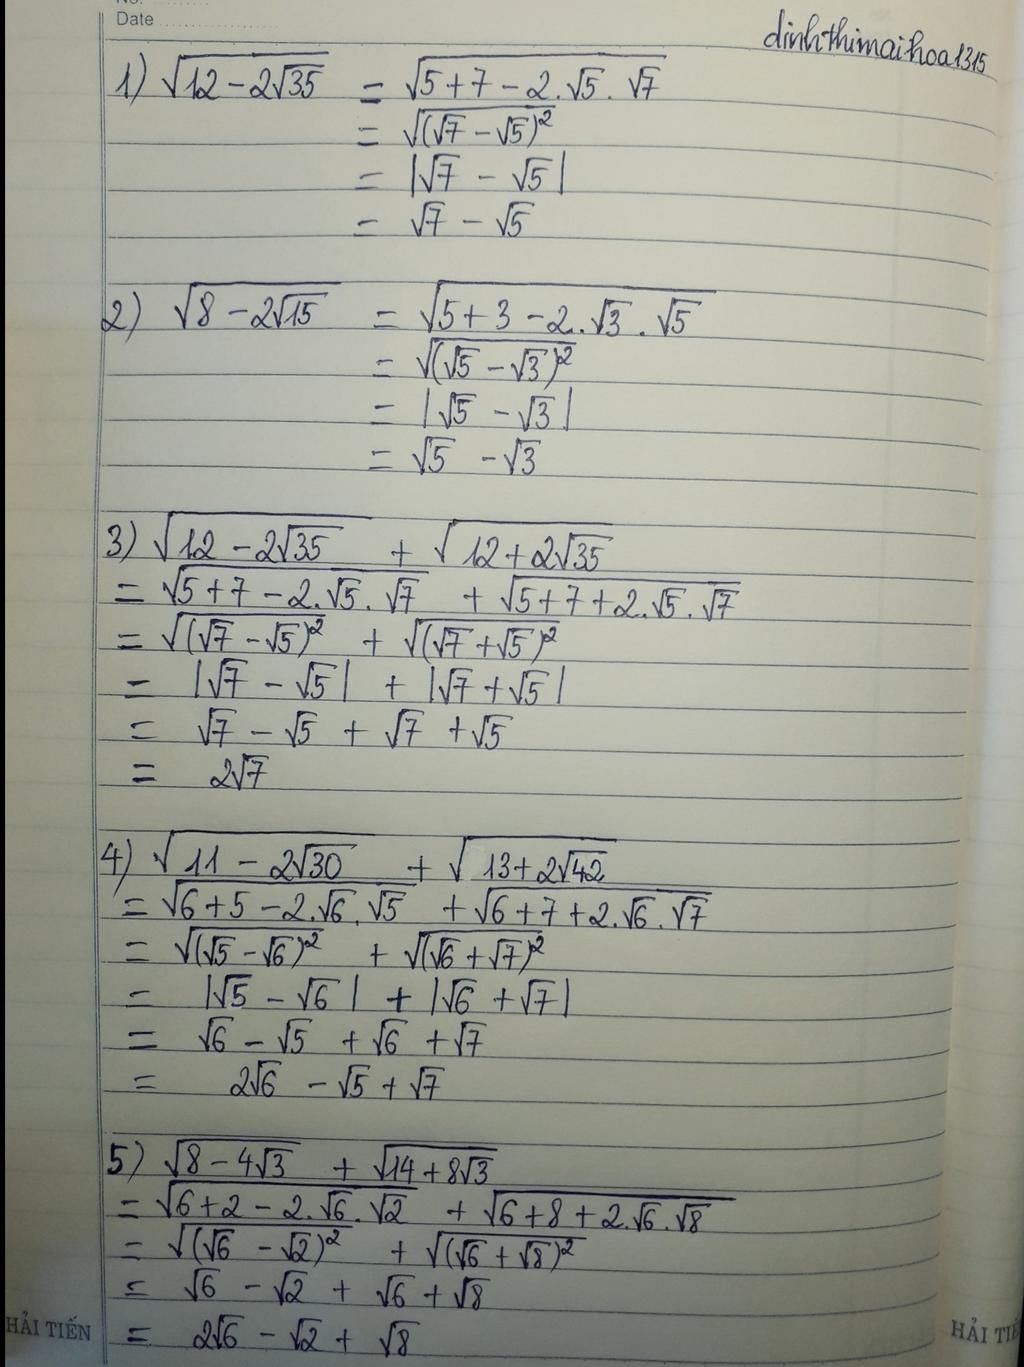 Date
dinhthimaihoa1315
1) √(12 - 2√35) = √(5 + 7 - 2.√5.√7)
= √((√7 - √5)²)
= |√7 - √5|
= √7 - √5
2) √(8 - 2√15) = √(5 + 3 - 2.√3.√5)
= √((√5 - √3)²)
= |√5 - √3|
= √5 - √3
3) √(12 - 2√35) + √(12 + 2√35)
= √(5 + 7 - 2.√5.√7) + √(5 + 7 + 2.√5.√7)
= √((√7 - √5)²) + √((√7 + √5)²)
= |√7 - √5| + |√7 + √5|
= √7 - √5 + √7 + √5
= 2√7
4) √(11 - 2√30) + √(13 + 2√42)
= √(6 + 5 - 2.√6.√5) + √(6 + 7 + 2.√6.√7)
= √((√5 - √6)²) + √((√6 + √7)²)
= |√5 - √6| + |√6 + √7|
= √6 - √5 + √6 + √7
= 2√6 - √5 + √7
5) √(8 - 4√3) + √(14 + 8√3)
= √(6 + 2 - 2.√6.√2) + √(6 + 8 + 2.√6.√8)
= √((√6 - √2)²) + √((√6 + √8)²)
= √6 - √2 + √6 + √8
= 2√6 - √2 + √8
HẢI TIẾN
HẢI TIẾ